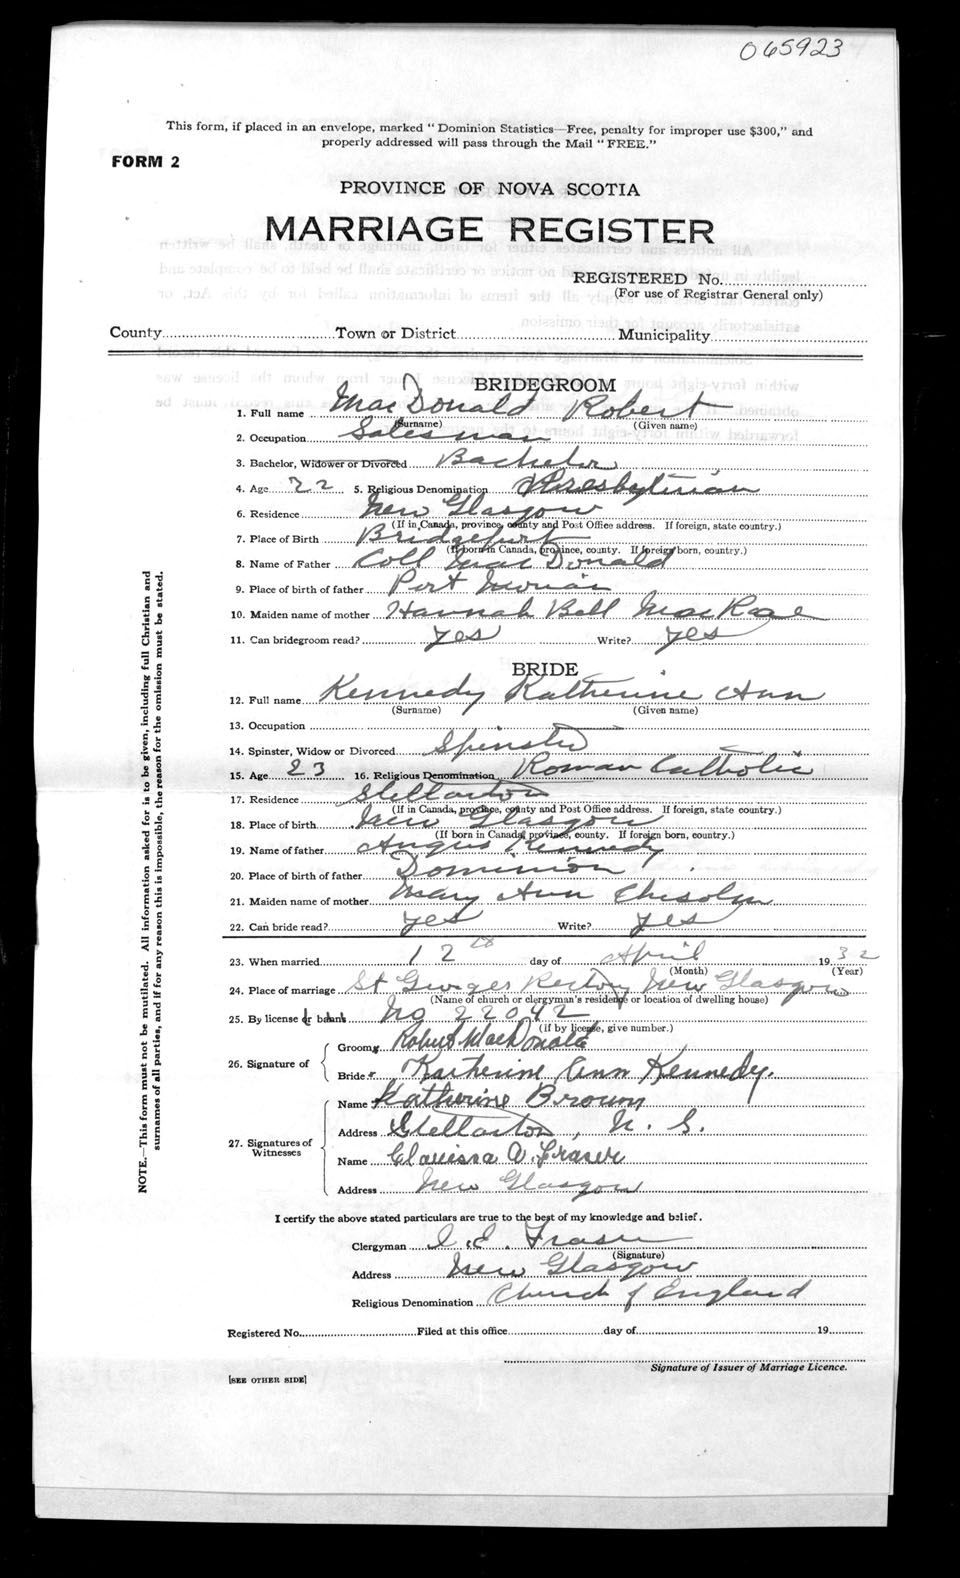 065923
This form, if placed in an envelope, marked "Dominion Statistics—Free, penalty for improper use $300," and
properly addressed will pass through the Mail "FREE."
FORM 2
PROVINCE OF NOVA SCOTIA
MARRIAGE REGISTER
REGISTERED No.
(For use of Registrar General only)
County Town or District Municipality
BRIDEGROOM
1. Full name MacDonald Robert
(Surname) (Given name)
2. Occupation Salesman
3. Bachelor, Widower or Divorced Bachelor
4. Age 22 5. Religious Denomination Presbyterian
6. Residence New Glasgow
(If in Canada, province, county and Post Office address. If foreign, state country.)
7. Place of Birth Bridgeport
(If born in Canada, province, county. If foreign born, country.)
8. Name of Father Coll MacDonald
9. Place of birth of father Port Morien
10. Maiden name of mother Hannah Bell MacRae
11. Can bridegroom read? yes Write? yes
BRIDE
12. Full name Kennedy Katherine Ann
(Surname) (Given name)
13. Occupation
14. Spinster, Widow or Divorced Spinster
15. Age 23 16. Religious Denomination Roman Catholic
17. Residence Stellarton
(If in Canada, province, county and Post Office address. If foreign, state country.)
18. Place of birth New Glasgow
(If born in Canada, province, county. If foreign born, country.)
19. Name of father Angus Kennedy
20. Place of birth of father Dominion
21. Maiden name of mother Mary Ann Chisolm
22. Can bride read? yes Write? yes
23. When married 12th day of April 1932
(Month) (Year)
24. Place of marriage St Georges Rectory New Glasgow
(Name of church or clergyman's residence or location of dwelling house)
25. By license or banns No 22042
(If by license, give number.)
26. Signature of Groom Robert MacDonald
Bride Katherine Ann Kennedy.
27. Signatures of Witnesses Name Katherine Brown
Address Stellarton, N. S.
Name Clarissa A. Fraser
Address New Glasgow
I certify the above stated particulars are true to the best of my knowledge and belief.
Clergyman C. E. Fraser
(Signature)
Address New Glasgow
Religious Denomination Church of England
Registered No. Filed at this office day of 19
Signature of Issuer of Marriage Licence.
[SEE OTHER SIDE]
NOTE.—This form must not be mutilated. All information asked for is to be given, including full Christian and
surnames of all parties, and if for any reason this is impossible, the reason for the omission must be stated.